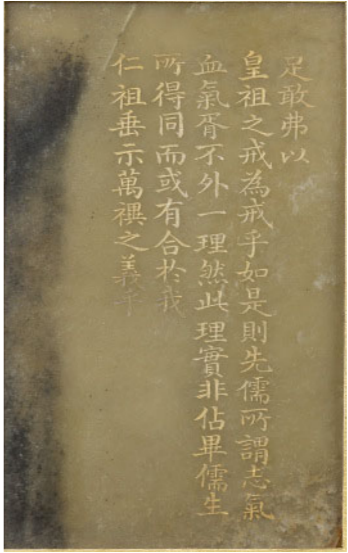 足敢弗以
皇祖之戒為戒乎如是則先儒所謂志氣
血氣胥不外一理然此理實非佔畢儒生
所得同而或有合於我
仁祖垂示萬禩之義乎